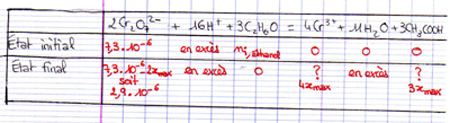 2Cr₂O₇²⁻ + 16H⁺ + 3C₂H₆O = 4Cr³⁺ + 11H₂O + 3CH₃COOH
État initial 7,3.10⁻⁶ en excès ni,éthanol 0 0 0
État final 7,3.10⁻⁶-2xmax en excès 0 ? en excès ?
soit 4xmax 3xmax
2,9.10⁻⁶